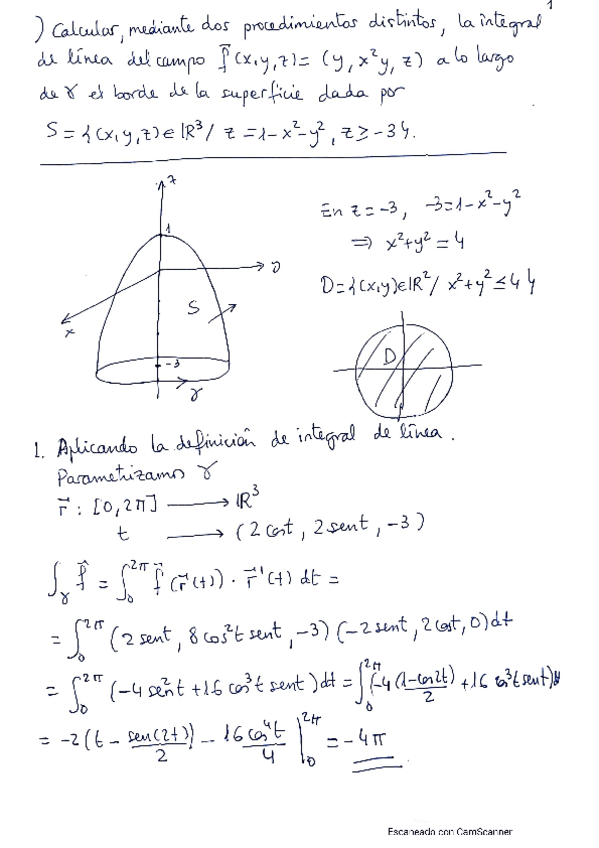 1
) Calcular, mediante dos procedimientos distintos, la integral
de línea del campo f⃗(x,y,z)=(y, x²y, z) a lo largo
de γ el borde de la superficie dada por
S={(x,y,z)∈ℝ³/ z=1-x²-y², z≥-3}.
z
En z=-3, -3=1-x²-y²
1
⇒ x²+y²=4
D={(x,y)∈ℝ²/ x²+y²≤4}
S
x
D
-3
γ
1. Aplicando la definición de integral de línea.
Parametrizamos γ
r⃗: [0,2π] ⟶ ℝ³
t ⟶ (2cost, 2sent, -3)
∫_γ f⃗ = ∫₀^{2π} f⃗(r⃗(t))·r⃗'(t) dt =
= ∫₀^{2π} (2sent, 8cos²t sent, -3)(-2sent, 2cost, 0)dt
= ∫₀^{2π} (-4sen²t+16cos³t sent)dt = ∫₀^{2π} (-4(1-cos2t)/2 +16cos³t sent)dt
= -2(t - sen(2t)/2) - 16cos⁴t/4 |₀^{2π} = -4π
Escaneado con CamScanner